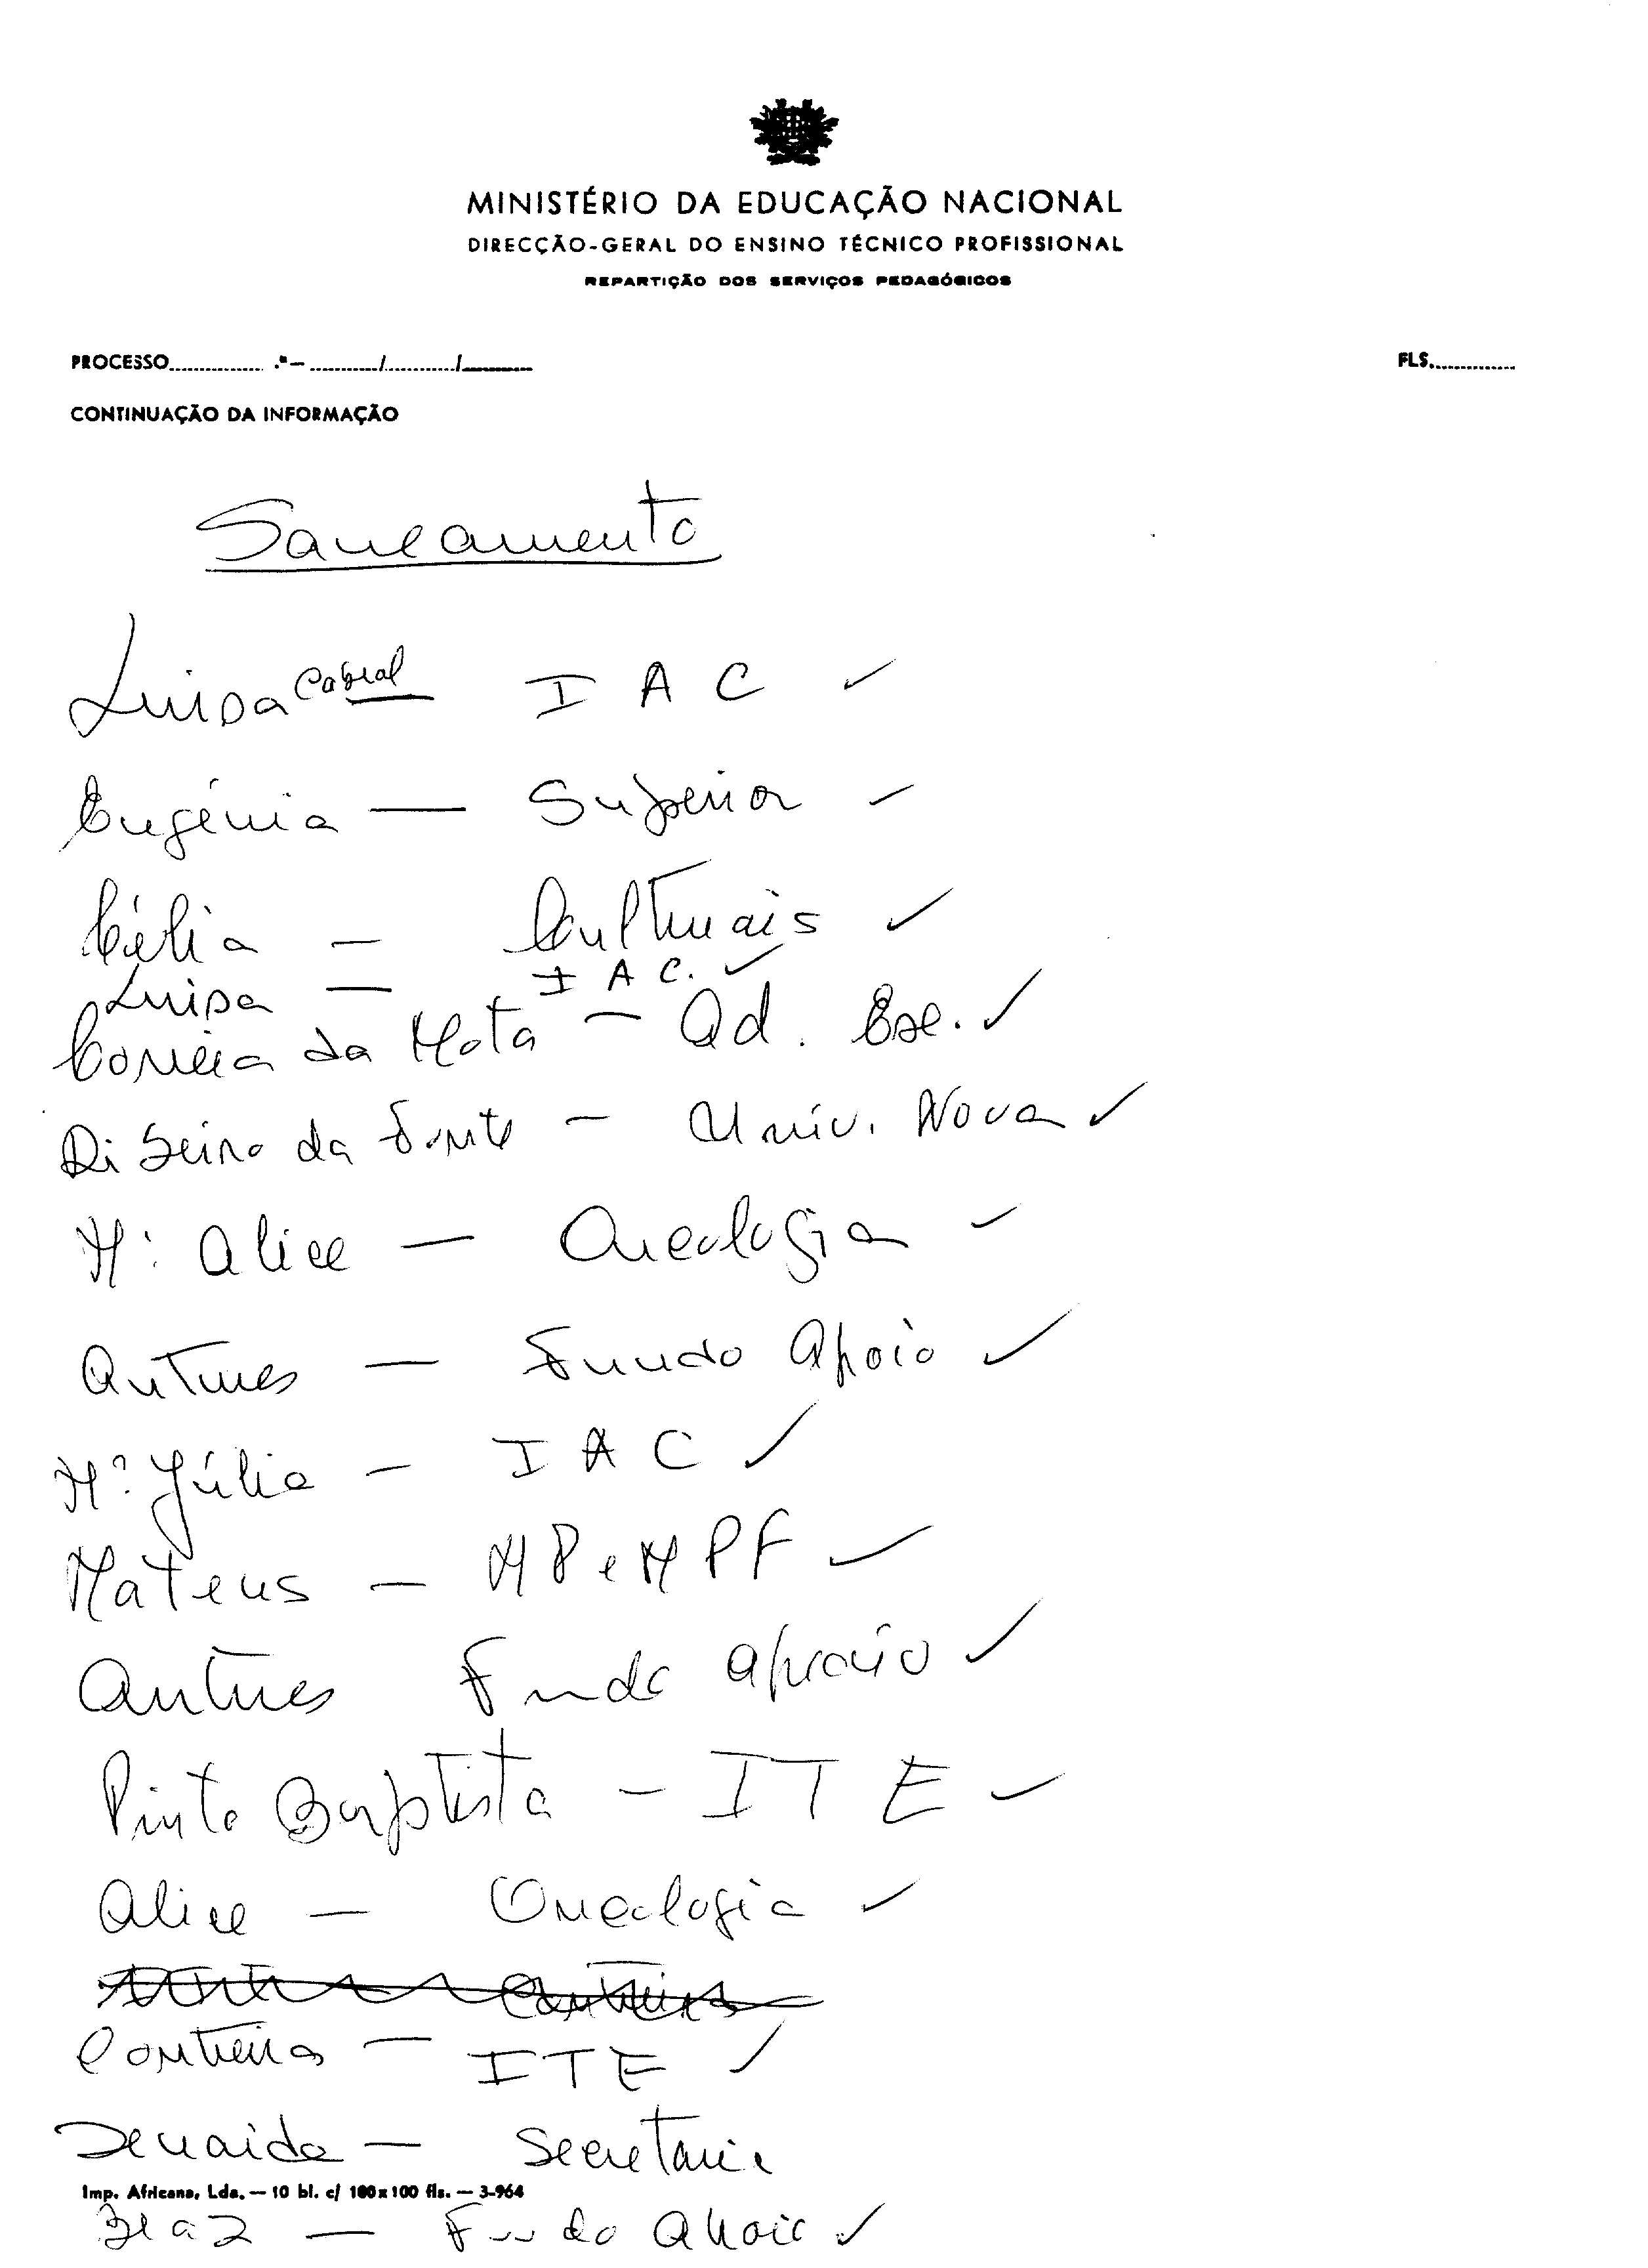 MINISTÉRIO DA EDUCAÇÃO NACIONAL
DIRECÇÃO-GERAL DO ENSINO TÉCNICO PROFISSIONAL
REPARTIÇÃO DOS SERVIÇOS PEDAGÓGICOS
PROCESSO ............... .º — .........../.........../...........
FLS..............
CONTINUAÇÃO DA INFORMAÇÃO
Saneamento
Luisa Cabral I A C ✓
Eugénia — Superior ✓
Célia — Culturais ✓
Luisa — I A C. ✓
Correia da Mota — Ad. Esc. ✓
Ribeiro da Fonte — Univ. Nova ✓
Mª Alice — Oncologia ✓
Antunes — Fundo Apoio ✓
Mª Júlia — I A C ✓
Mateus — MP e MPF ✓
Antunes Fundo apoio ✓
Pinto Baptista — I T E ✓
Alice — Oncologia ✓
Contreiras — ITE ✓
Zenaida — Secretaria
Imp. Africana, Lda. — 10 bl. c/ 100x100 fls. — 3-964
— Fundo Apoio ✓